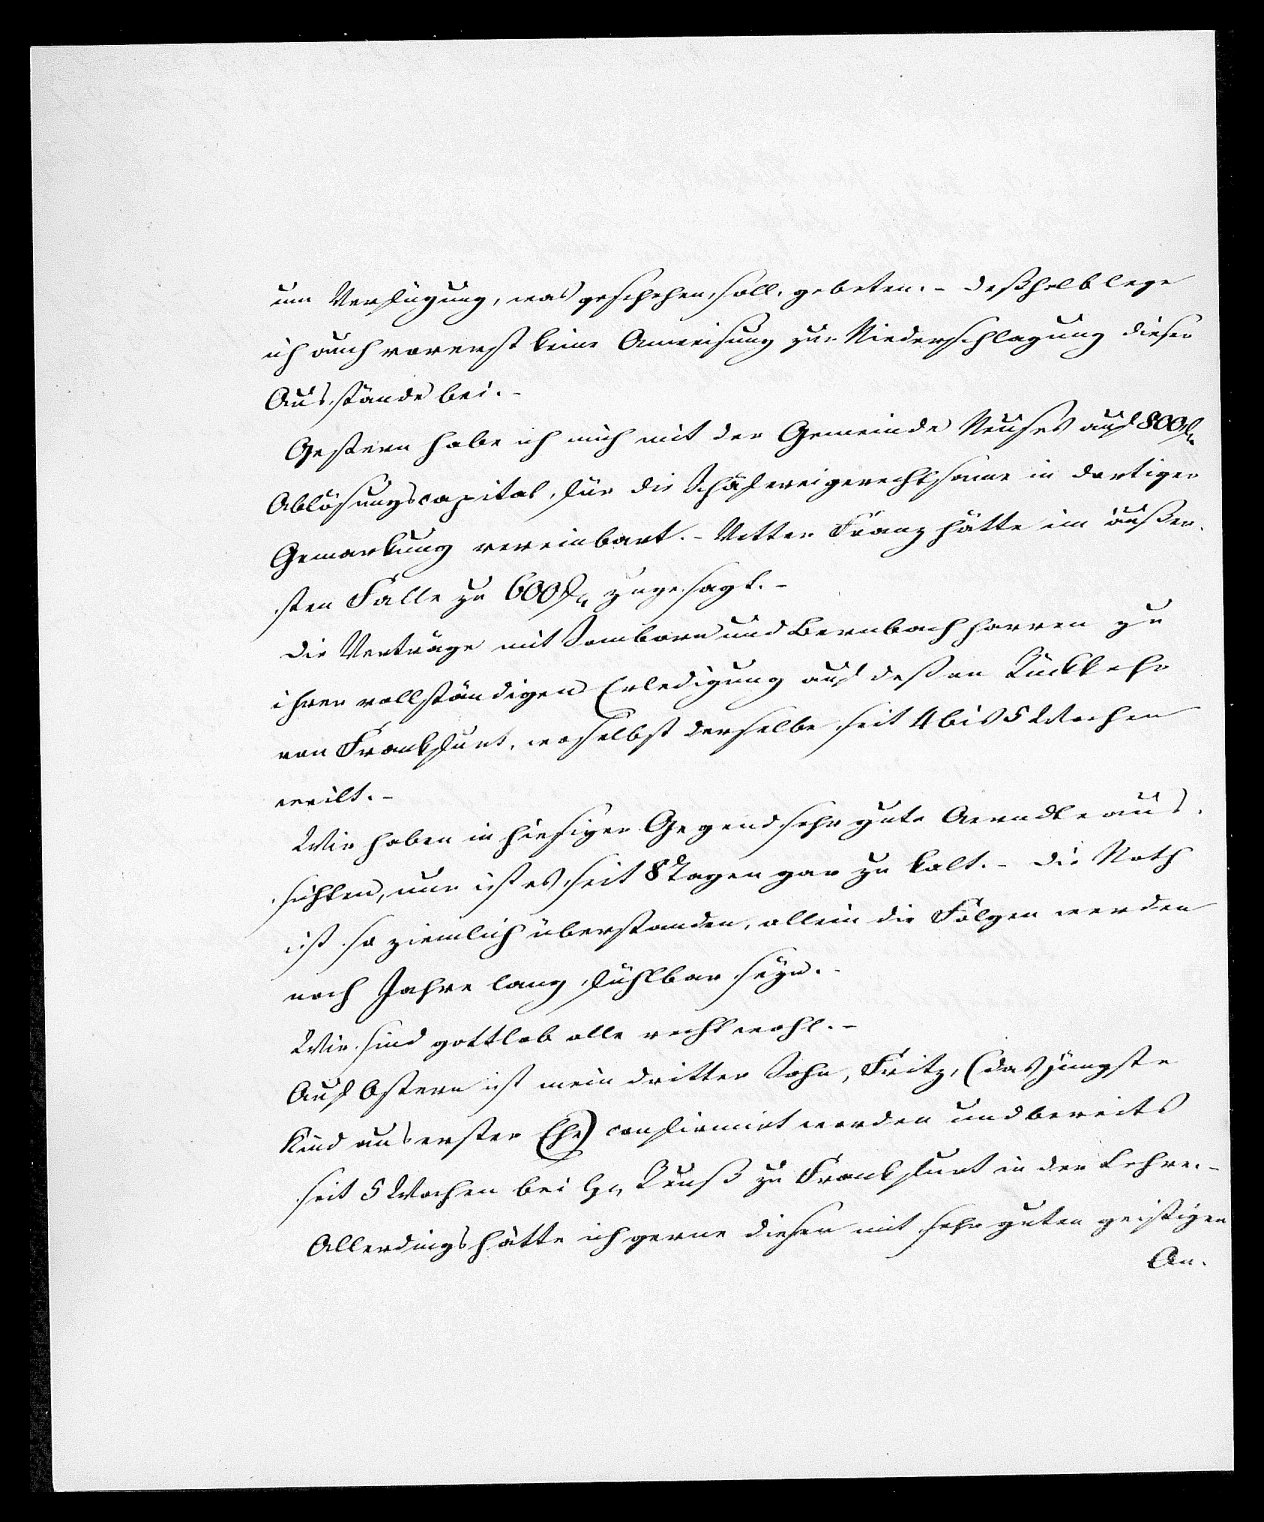 um Verfügung, was geschehen soll, gebeten. - Deßhalb lege
ich auch vorerst keine Anweisung zur Niederschlagung dieser
Ausstände bei. -
Gestern habe ich mich mit der Gemeinde Neuses auf 800 fl.
Ablösungscapital für die Schäfereigerechtsame in dortiger
Gemarkung vereinbart. - Vetter Franz hätte im äußer-
sten Falle zu 600 fl. zugesagt. -
Die Verträge mit Somborn und Bernbach harren zu
ihrer vollständigen Erledigung auf deßen Rückkehr
von Frankfurt, woselbst derselbe seit 4 bis 5 Wochen
weilt. -
Wir haben in hiesiger Gegend sehr gute Aerndteaus-
sichten, nur ist es seit 8 Tagen gar zu kalt. - Die Noth
ist so ziemlich überstanden, allein die Folgen werden
noch Jahre lang fühlbar seyn. -
Wir sind gottlob alle recht wohl. -
Auf Ostern ist mein dritter Sohn, Fritz, (das jüngste
Kind aus erster Ehe) confirmirt worden und bereits
seit 5 Wochen bei H. Reuß zu Frankfurt in der Lehre. -
Allerdings hätte ich gerne diesen mit sehr guten geistigen
An-